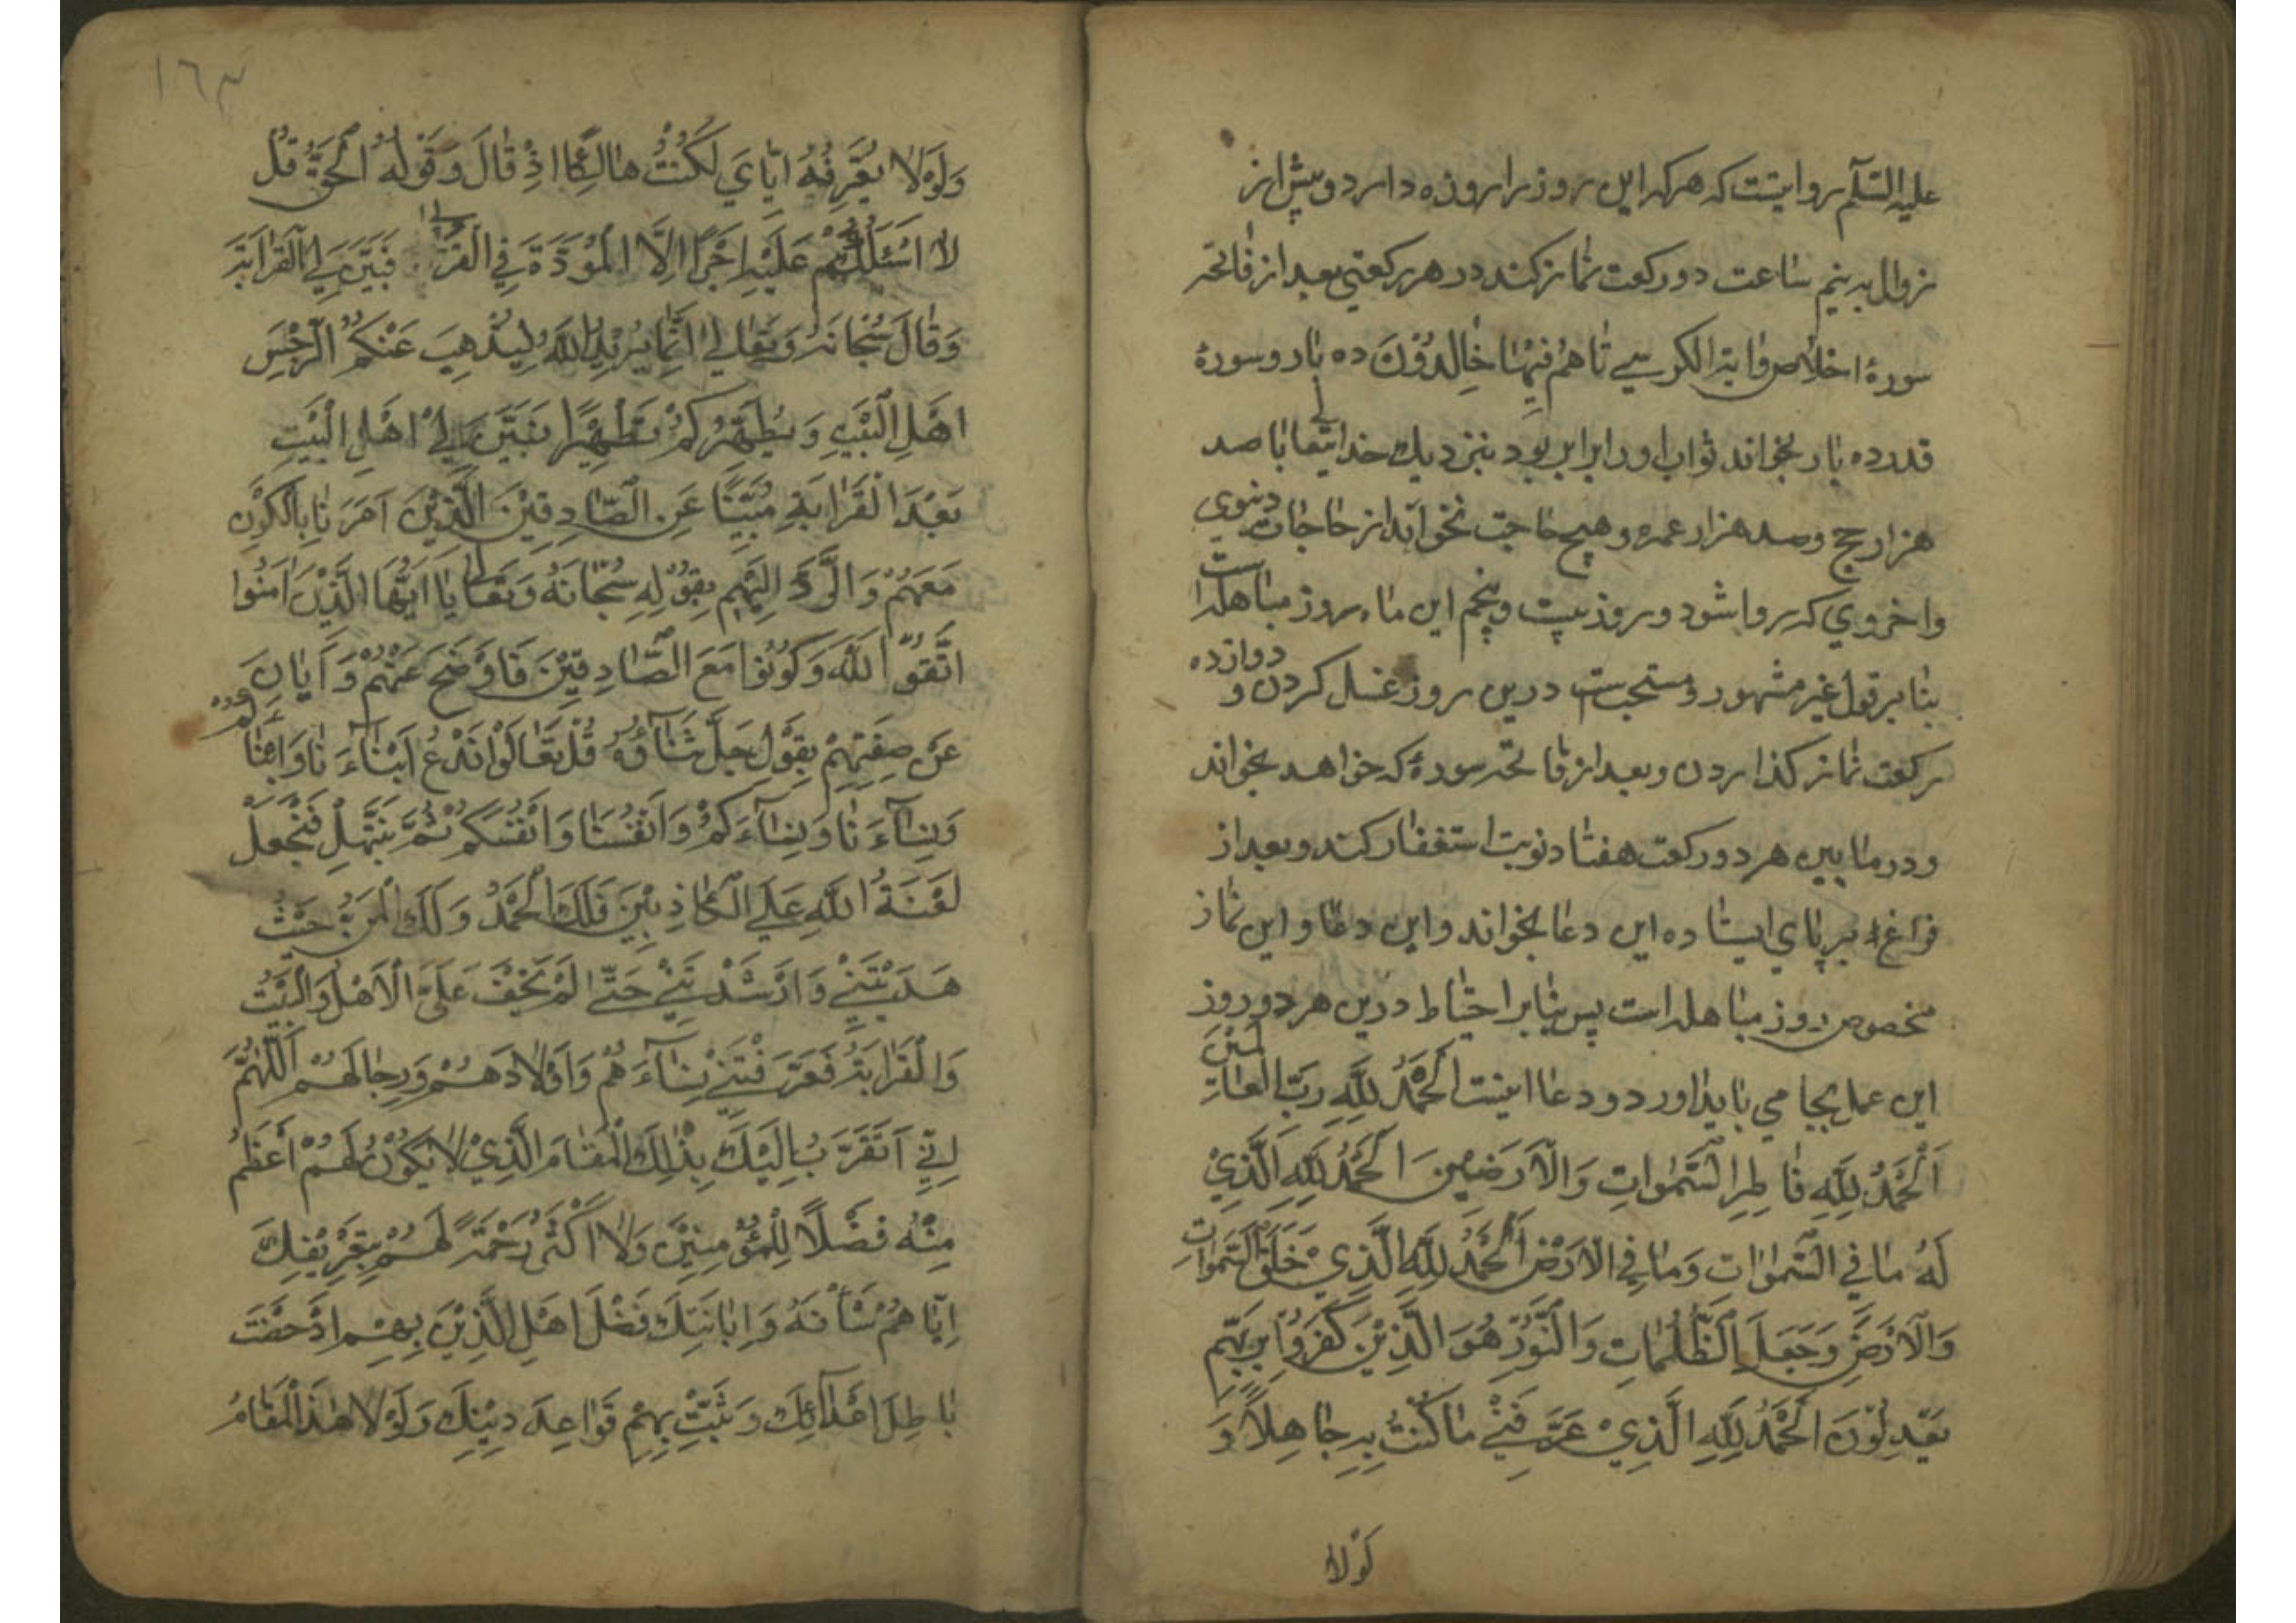 علیه السّلم روایتست که هرکه این روز را روزه دارد و پیش از
زوال به نیم ساعت دو رکعت نماز کند در هر رکعتی بعد از فاتحه
سورهٔ اخلاص و ایة الکرسے تا هُم فِیهَا خَالِدُوْنَ ده بار و سورهٔ
قدر ده بار بخواند ثواب او برابر بود بنزدیك خدایتعالی با صد
هزار حج و صد هزار عمره و هیچ حاجت نخواند از حاجات دنیوی
و اخروي که روا شود و روز بیست و پنجم این ماه روز مباهله است
بنابر قول غیر مشهور و مستحبست درین روز غسل کردن و دوازده
رکعت نماز کذاردن و بعد از فاتحه سورهٔ که خواهد بخواند
و در مابین هر دو رکعت هفتاد نوبت استغفار کند و بعد از
فراغ بر پاي ایستاده این دعا بخواند و این دعا و این نماز
مخصوص روز مباهله است پس بنابر احتیاط درین هر دو روز
این عمل بجا می باید اورد و دعا اینست اَلْحَمْدُ لِلّٰهِ رَبِّ الْعَالَمِیْنَ
اَلْحَمْدُ لِلّٰهِ فَاطِرِ السَّمٰوَاتِ وَالْاَرَضِیْنَ اَلْحَمْدُ لِلّٰهِ الَّذِيْ
لَهُ مَا فِي السَّمٰوَاتِ وَمَا فِي الْاَرْضِ اَلْحَمْدُ لِلّٰهِ الَّذِيْ خَلَقَ السَّمٰوَاتِ
وَالْاَرْضَ وَجَعَلَ الظُّلُمَاتِ وَالنُّوْرَ هُوَ الَّذِیْنَ كَفَرُوْا بِرَبِّهِمْ
یَعْدِلُوْنَ اَلْحَمْدُ لِلّٰهِ الَّذِيْ عَرَّفَنِيْ مَا كُنْتُ بِهِ جَاهِلًا وَ
لَوْلَا
۱٦۳
وَلَوْلَا تَعْرِیْفُهُ اِیَّايَ لَكُنْتُ هَالِكًا اِذْ قَالَ وَقَوْلُهُ الْحَقُّ قُلْ
لَا اَسْئَلُكُمْ عَلَیْهِ اَجْرًا اِلَّا الْمَوَدَّةَ فِي الْقُرْبٰی فَبَیَّنَ لِيَ الْقَرَابَةَ
وَقَالَ سُبْحَانَهُ وَتَعَالٰی اِنَّمَا یُرِیْدُ اللّٰهُ لِیُذْهِبَ عَنْكُمُ الرِّجْسَ
اَهْلَ الْبَیْتِ وَیُطَهِّرَكُمْ تَطْهِیْرًا فَبَیَّنَ لِيْ اَهْلَ الْبَیْتِ
بَعْدَ الْقَرَابَةِ مُبَیِّنًا عَنِ الصَّادِقِیْنَ الَّذِیْنَ اَمَرَنَا بِالْكَوْنِ
مَعَهُمْ وَالرَّدِّ اِلَیْهِمْ بِقَوْلِهِ سُبْحَانَهُ وَتَعَالٰی یَا اَیُّهَا الَّذِیْنَ اٰمَنُوا
اتَّقُوا اللّٰهَ وَكُوْنُوْا مَعَ الصَّادِقِیْنَ فَاَوْضَحَ عَنْهُمْ وَاَبَانَ
عَنْ صِفَتِهِمْ بِقَوْلِ جَلَّ ثَنَاؤُهُ قُلْ تَعَالَوْا نَدْعُ اَبْنَاءَنَا وَاَبْنَاءَكُمْ
وَنِسَاءَنَا وَنِسَاءَكُمْ وَاَنْفُسَنَا وَاَنْفُسَكُمْ ثُمَّ نَبْتَهِلْ فَنَجْعَلْ
لَعْنَةَ اللّٰهِ عَلَی الْكَاذِبِیْنَ فَلَكَ الْحَمْدُ وَلَكَ الْمَنُّ حَیْثُ
هَدَیْتَنِيْ وَاَرْشَدْتَنِيْ حَتّٰی لَمْ یَخْفَ عَلَيَّ الْاَهْلُ وَالْبَیْتُ
وَالْقَرَابَةُ فَعَرَّفْتَنِيْ نِسَاءَهُمْ وَاَوْلَادَهُمْ وَرِجَالَهُمْ اَللّٰهُمَّ
اِنِّيْ اَتَقَرَّبُ اِلَیْكَ بِذٰلِكَ الْمَقَامِ الَّذِيْ لَا یَكُوْنُ لَهُمْ اَعْظَمُ
مِنْهُ فَضْلًا لِلْمُؤْمِنِیْنَ وَلَا اَكْثَرُ رَحْمَةً لَهُمْ بِتَعْرِیْفِكَ
اِیَّاهُمْ شَأْنَهُ وَاِبَانَتِكَ فَضْلَ اَهْلِ الَّذِیْنَ بِهِمْ اَدْحَضْتَ
بَاطِلَ اَعْدَائِكَ وَثَبَّتَّ بِهِمْ قَوَاعِدَ دِیْنِكَ وَلَوْلَا هٰذَا الْمَقَامُ